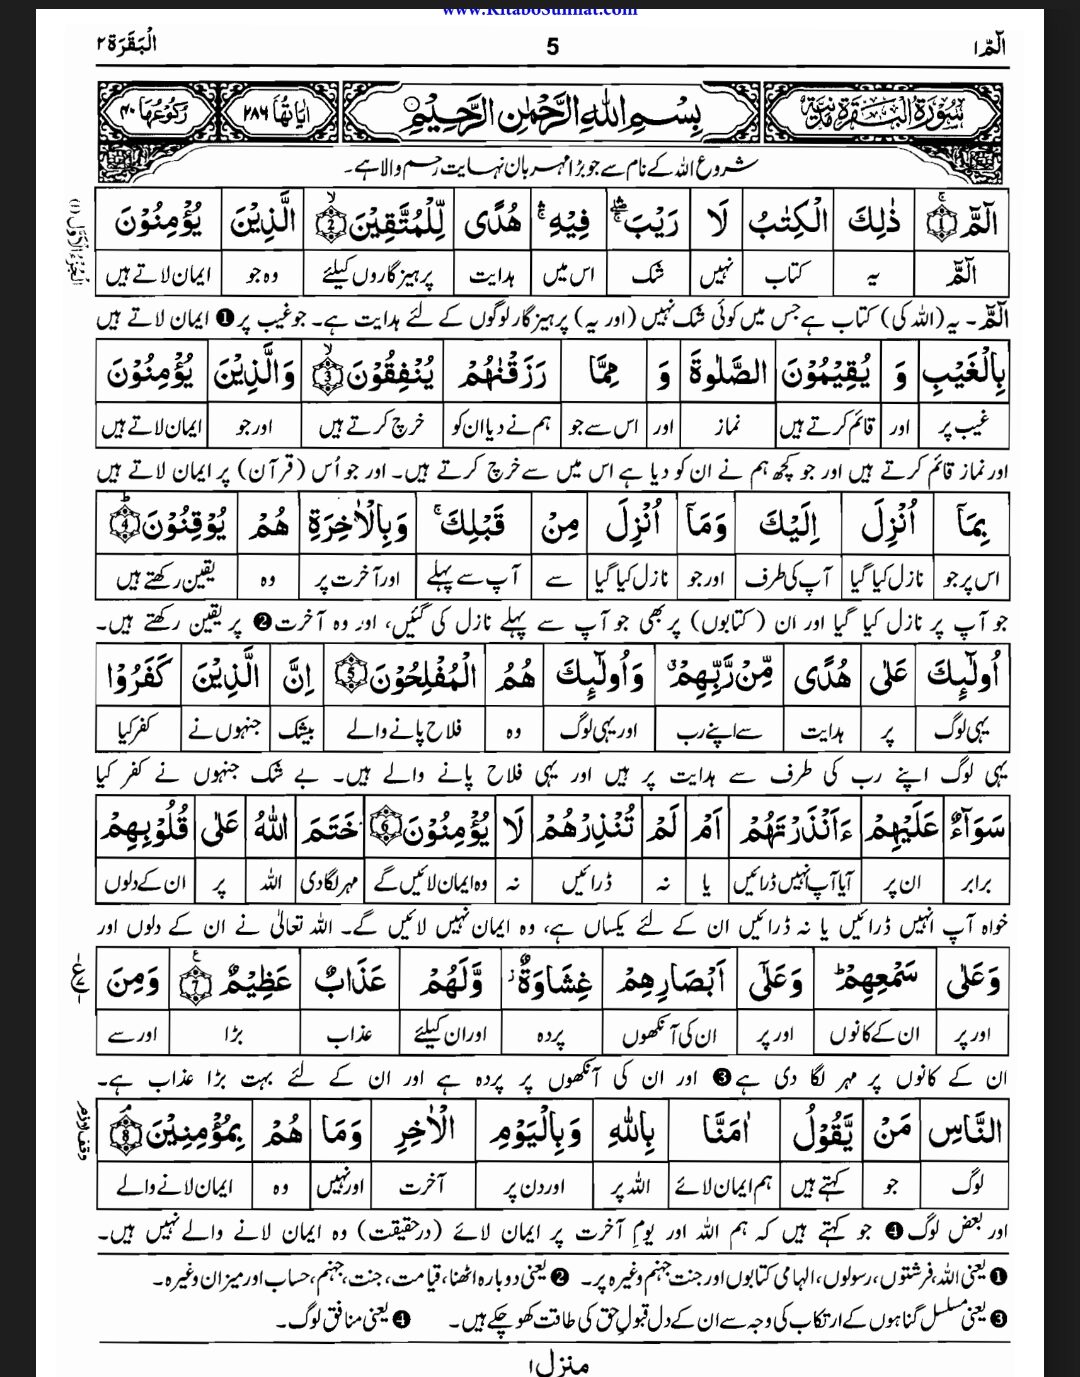 www.KitaboSunnat.com
الٓمّٓ ۱ 5 اَلْبَقَرَة ۲
سُوْرَةُ الْبَقَرَةِ مَدَنِيَّةٌ بِسْمِ اللّٰهِ الرَّحْمٰنِ الرَّحِيْمِ اٰيَاتُهَا ۲۸۶ رُكُوْعُهَا ۴۰
شروع اللہ کے نام سے جو بڑا مہربان نہایت رحم والا ہے۔
الٓمّٓ ۚ 1 ذٰلِكَ الْكِتٰبُ لَا رَيْبَ ۛۖ فِيْهِ ۛۚ هُدًى لِّلْمُتَّقِيْنَ ۙ 2 الَّذِيْنَ يُؤْمِنُوْنَ
الٓمّٓ یہ کتاب نہیں شک اس میں ہدایت پرہیز گاروں کیلئے وہ جو ایمان لاتے ہیں
الٓمّٓ۔ یہ (اللہ کی) کتاب ہے جس میں کوئی شک نہیں (اور یہ) پرہیز گار لوگوں کے لئے ہدایت ہے۔ جو غیب پر ❶ ایمان لاتے ہیں
بِالْغَيْبِ وَ يُقِيْمُوْنَ الصَّلٰوةَ وَ مِمَّا رَزَقْنٰهُمْ يُنْفِقُوْنَ ۙ 3 وَالَّذِيْنَ يُؤْمِنُوْنَ
غیب پر اور قائم کرتے ہیں نماز اور اس سے جو ہم نے دیا ان کو خرچ کرتے ہیں اور جو ایمان لاتے ہیں
اور نماز قائم کرتے ہیں اور جو کچھ ہم نے ان کو دیا ہے اس میں سے خرچ کرتے ہیں۔ اور جو اُس (قرآن) پر ایمان لاتے ہیں
بِمَآ اُنْزِلَ اِلَيْكَ وَمَآ اُنْزِلَ مِنْ قَبْلِكَ ۚ وَبِالْاٰخِرَةِ هُمْ يُوْقِنُوْنَ ؕ 4
اس پر جو نازل کیا گیا آپ کی طرف اور جو نازل کیا گیا سے آپ سے پہلے اور آخرت پر وہ یقین رکھتے ہیں
جو آپ پر نازل کیا گیا اور ان (کتابوں) پر بھی جو آپ سے پہلے نازل کی گئیں، اور وہ آخرت ❷ پر یقین رکھتے ہیں۔
اُولٰٓئِكَ عَلٰى هُدًى مِّنْ رَّبِّهِمْ ۗ وَاُولٰٓئِكَ هُمُ الْمُفْلِحُوْنَ 5 اِنَّ الَّذِيْنَ كَفَرُوْا
یہی لوگ پر ہدایت سے اپنے رب اور یہی لوگ وہ فلاح پانے والے بیشک جنہوں نے کفر کیا
یہی لوگ اپنے رب کی طرف سے ہدایت پر ہیں اور یہی فلاح پانے والے ہیں۔ بے شک جنہوں نے کفر کیا
سَوَآءٌ عَلَيْهِمْ ءَاَنْذَرْتَهُمْ اَمْ لَمْ تُنْذِرْهُمْ لَا يُؤْمِنُوْنَ 6 خَتَمَ اللّٰهُ عَلٰى قُلُوْبِهِمْ
برابر ان پر آیا آپ انہیں ڈرائیں یا نہ ڈرائیں نہ وہ ایمان لائیں گے مہر لگا دی اللہ پر ان کے دلوں
خواہ آپ انہیں ڈرائیں یا نہ ڈرائیں ان کے لئے یکساں ہے، وہ ایمان نہیں لائیں گے۔ اللہ تعالیٰ نے ان کے دلوں اور
وَعَلٰى سَمْعِهِمْ ؕ وَعَلٰٓى اَبْصَارِهِمْ غِشَاوَةٌ ؗ وَّلَهُمْ عَذَابٌ عَظِيْمٌ ۠ 7 وَمِنَ
اور پر ان کے کانوں اور پر ان کی آنکھوں پردہ اور ان کیلئے عذاب بڑا اور سے
ان کے کانوں پر مہر لگا دی ہے ❸ اور ان کی آنکھوں پر پردہ ہے اور ان کے لئے بہت بڑا عذاب ہے۔
النَّاسِ مَنْ يَّقُوْلُ اٰمَنَّا بِاللّٰهِ وَبِالْيَوْمِ الْاٰخِرِ وَمَا هُمْ بِمُؤْمِنِيْنَ ۘ 8
لوگ جو کہتے ہیں ہم ایمان لائے اللہ پر اور دن پر آخرت اور نہیں وہ ایمان لانے والے
وقف لازم
اور بعض لوگ ❹ جو کہتے ہیں کہ ہم اللہ اور یومِ آخرت پر ایمان لائے (درحقیقت) وہ ایمان لانے والے نہیں ہیں۔
❶ یعنی اللہ، فرشتوں، رسولوں، الہامی کتابوں اور جنت جہنم وغیرہ پر۔ ❷ یعنی دوبارہ اٹھنا، قیامت، جنت، جہنم، حساب اور میزان وغیرہ۔
❸ یعنی مسلسل گناہوں کے ارتکاب کی وجہ سے ان کے دل قبولِ حق کی طاقت کھو چکے ہیں۔ ❹ یعنی منافق لوگ۔
منزل ۱